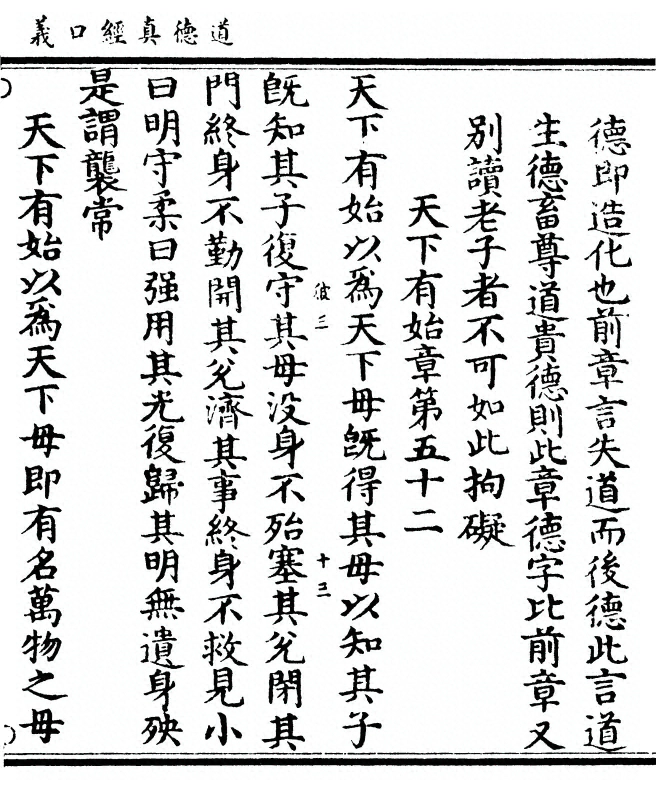 道德真經口義
德即造化也前章言失道而後德此言道
生德畜尊道貴德則此章德字比前章又
別讀老子者不可如此拘礙
天下有始章第五十二
天下有始以爲天下母旣得其母以知其子
彼三
十三
旣知其子復守其母没身不殆塞其兊閉其
門終身不勤開其兊濟其事終身不救見小
曰明守柔曰强用其光復歸其明無遺身殃
是謂襲常
天下有始以爲天下母即有名萬物之母